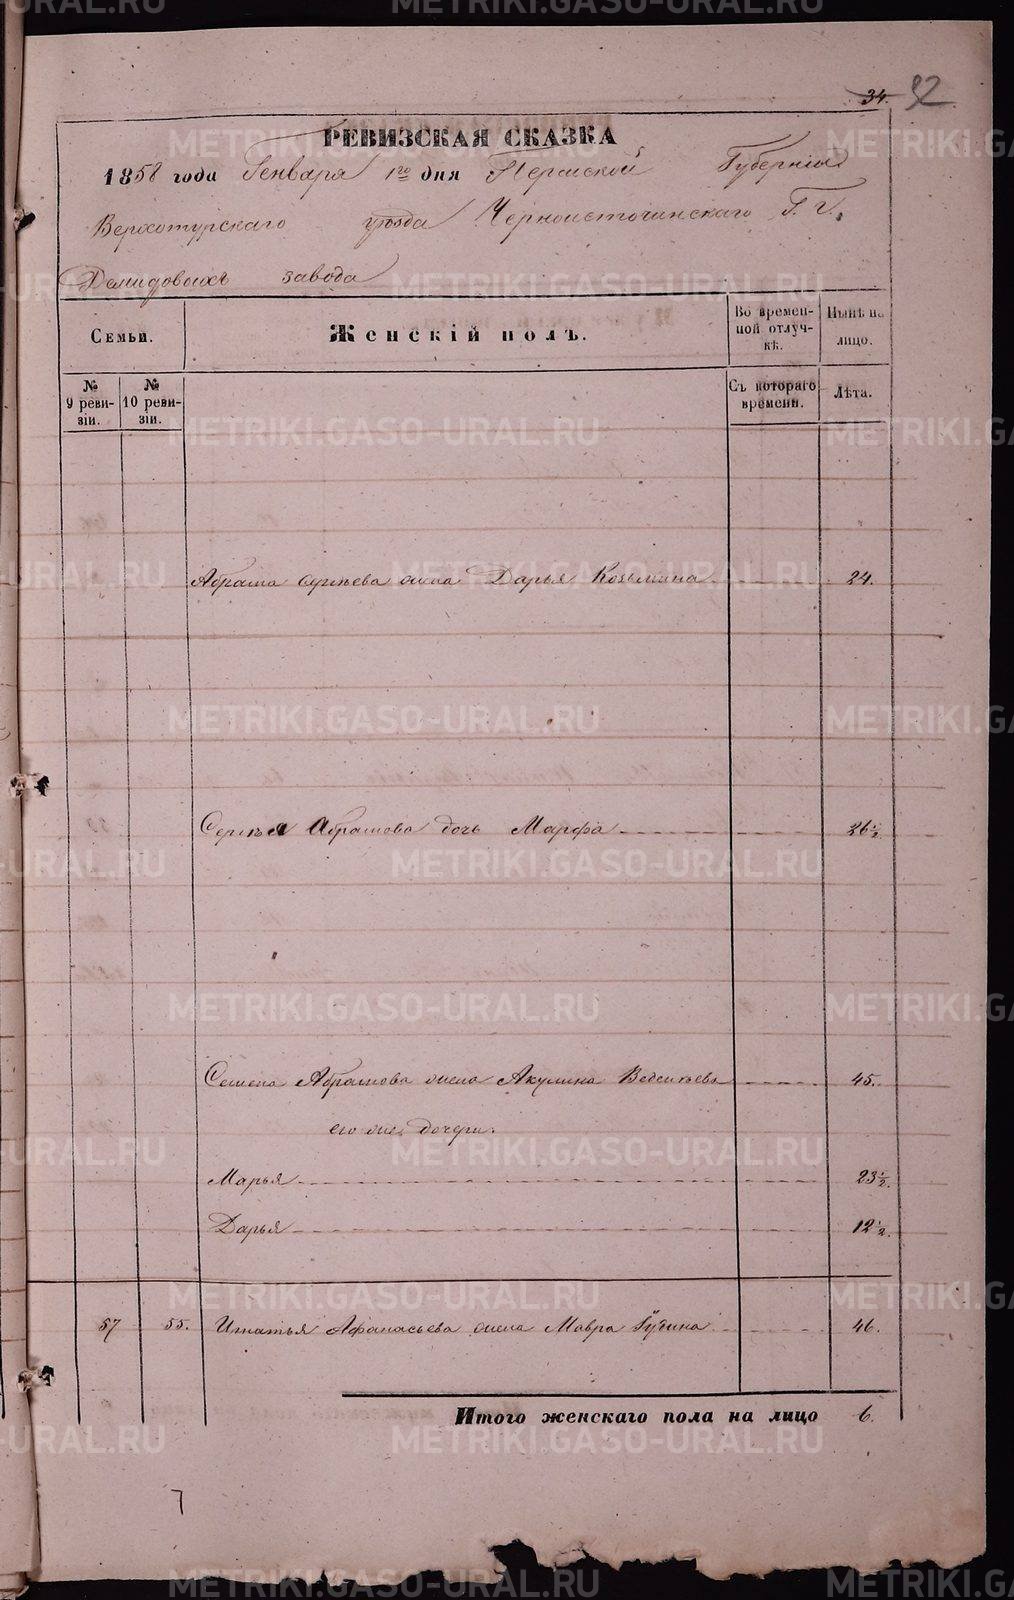 34. 92
РЕВИЗСКАЯ СКАЗКА
1858 года Генваря 1го дня Пермской Губернии
Верхотурскаго уѣзда Черноисточинскаго Г. Г.
Демидовыхъ завода
Семьи. Женскій полъ. Во временной отлучкѣ. Нынѣ на лицо.
№ 9 ревизіи. № 10 ревизіи. Съ котораго времени. Лѣта.
Абрама Сергѣева жена Дарья Козьмина 24.
Сергѣя Абрамова дочь Марфа 26½
Семена Абрамова жена Акулина Ведентьева 45.
его же дочери:
Марья 23½.
Дарья 12½.
57 55. Игнатья Афанасьева жена Мавра 46.
Итого женскаго пола на лицо 6.
7
METRIKI.GASO-URAL.RU